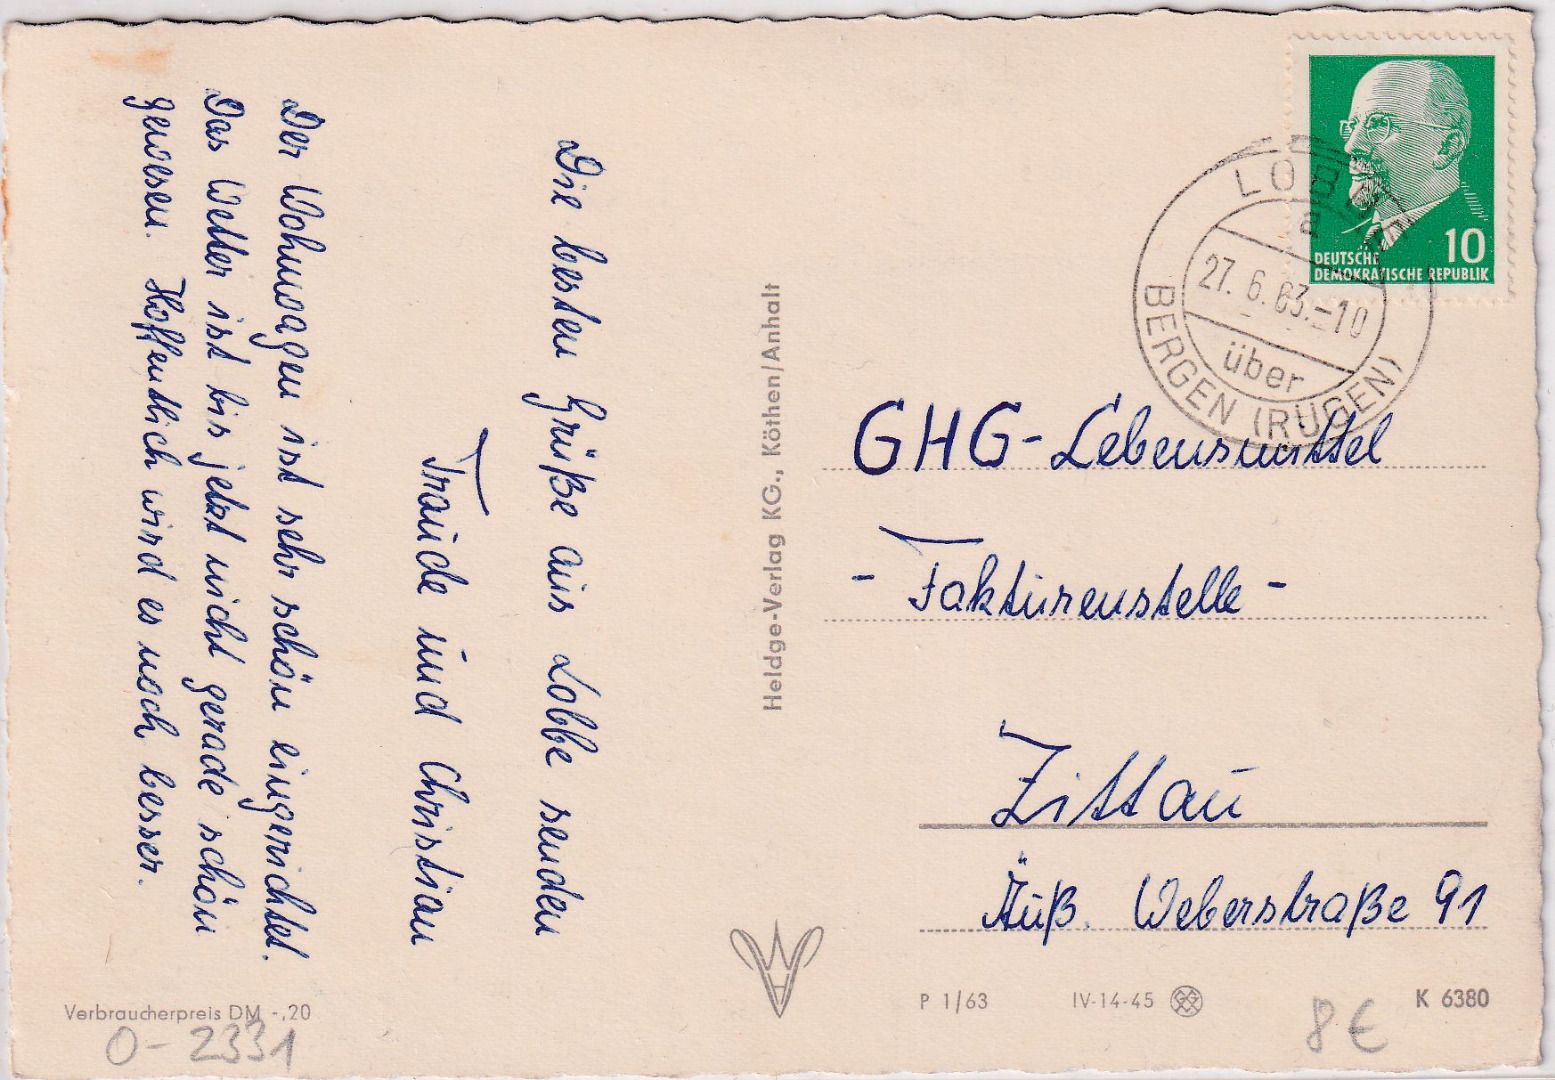 Die besten Grüße aus Lobbe senden
Traude und Christian
Der Wohnwagen ist sehr schön eingerichtet.
Das Wetter ist bis jetzt nicht gerade schön
gewesen. Hoffentlich wird es noch besser.
Verbraucherpreis DM -,20
O-2331
Heldge-Verlag KG., Köthen/Anhalt
10
DEUTSCHE
DEMOKRATISCHE REPUBLIK
LOBBE
a
27.6.63.-10
über
BERGEN (RÜGEN)
GHG-Lebensmittel
- Fakturenstelle -
Zittau
Äuß. Weberstraße 91
P 1/63 IV-14-45 K 6380
8€